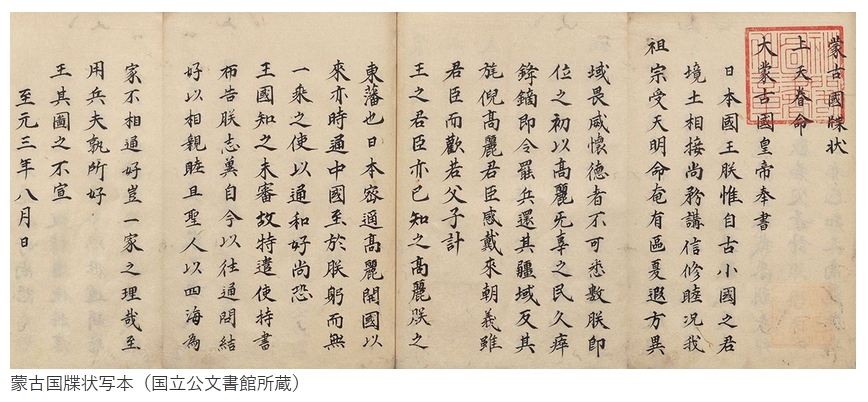 蒙古國牒状
上天眷命
大蒙古國皇帝奉書
日本國王朕惟自古小國之君
境土相接尚務講信修睦况我
祖宗受天明命奄有區夏遐方異
域畏威懷德者不可悉數朕即
位之初以高麗无辜之民久瘁
鋒鏑即令罷兵還其疆域反其
旄倪高麗君臣感戴來朝義雖
君臣而歡若父子計
王之君臣亦已知之高麗朕之
東藩也日本密邇高麗開國以
來亦時通中國至於朕躬而無
一乘之使以通和好尚恐
王國知之未審故特遣使持書
布告朕志冀自今以往通問結
好以相親睦且聖人以四海為
家不相通好豈一家之理哉至
用兵夫孰所好
王其圖之不宣
至元三年八月日
蒙古国牒状写本（国立公文書館所蔵）